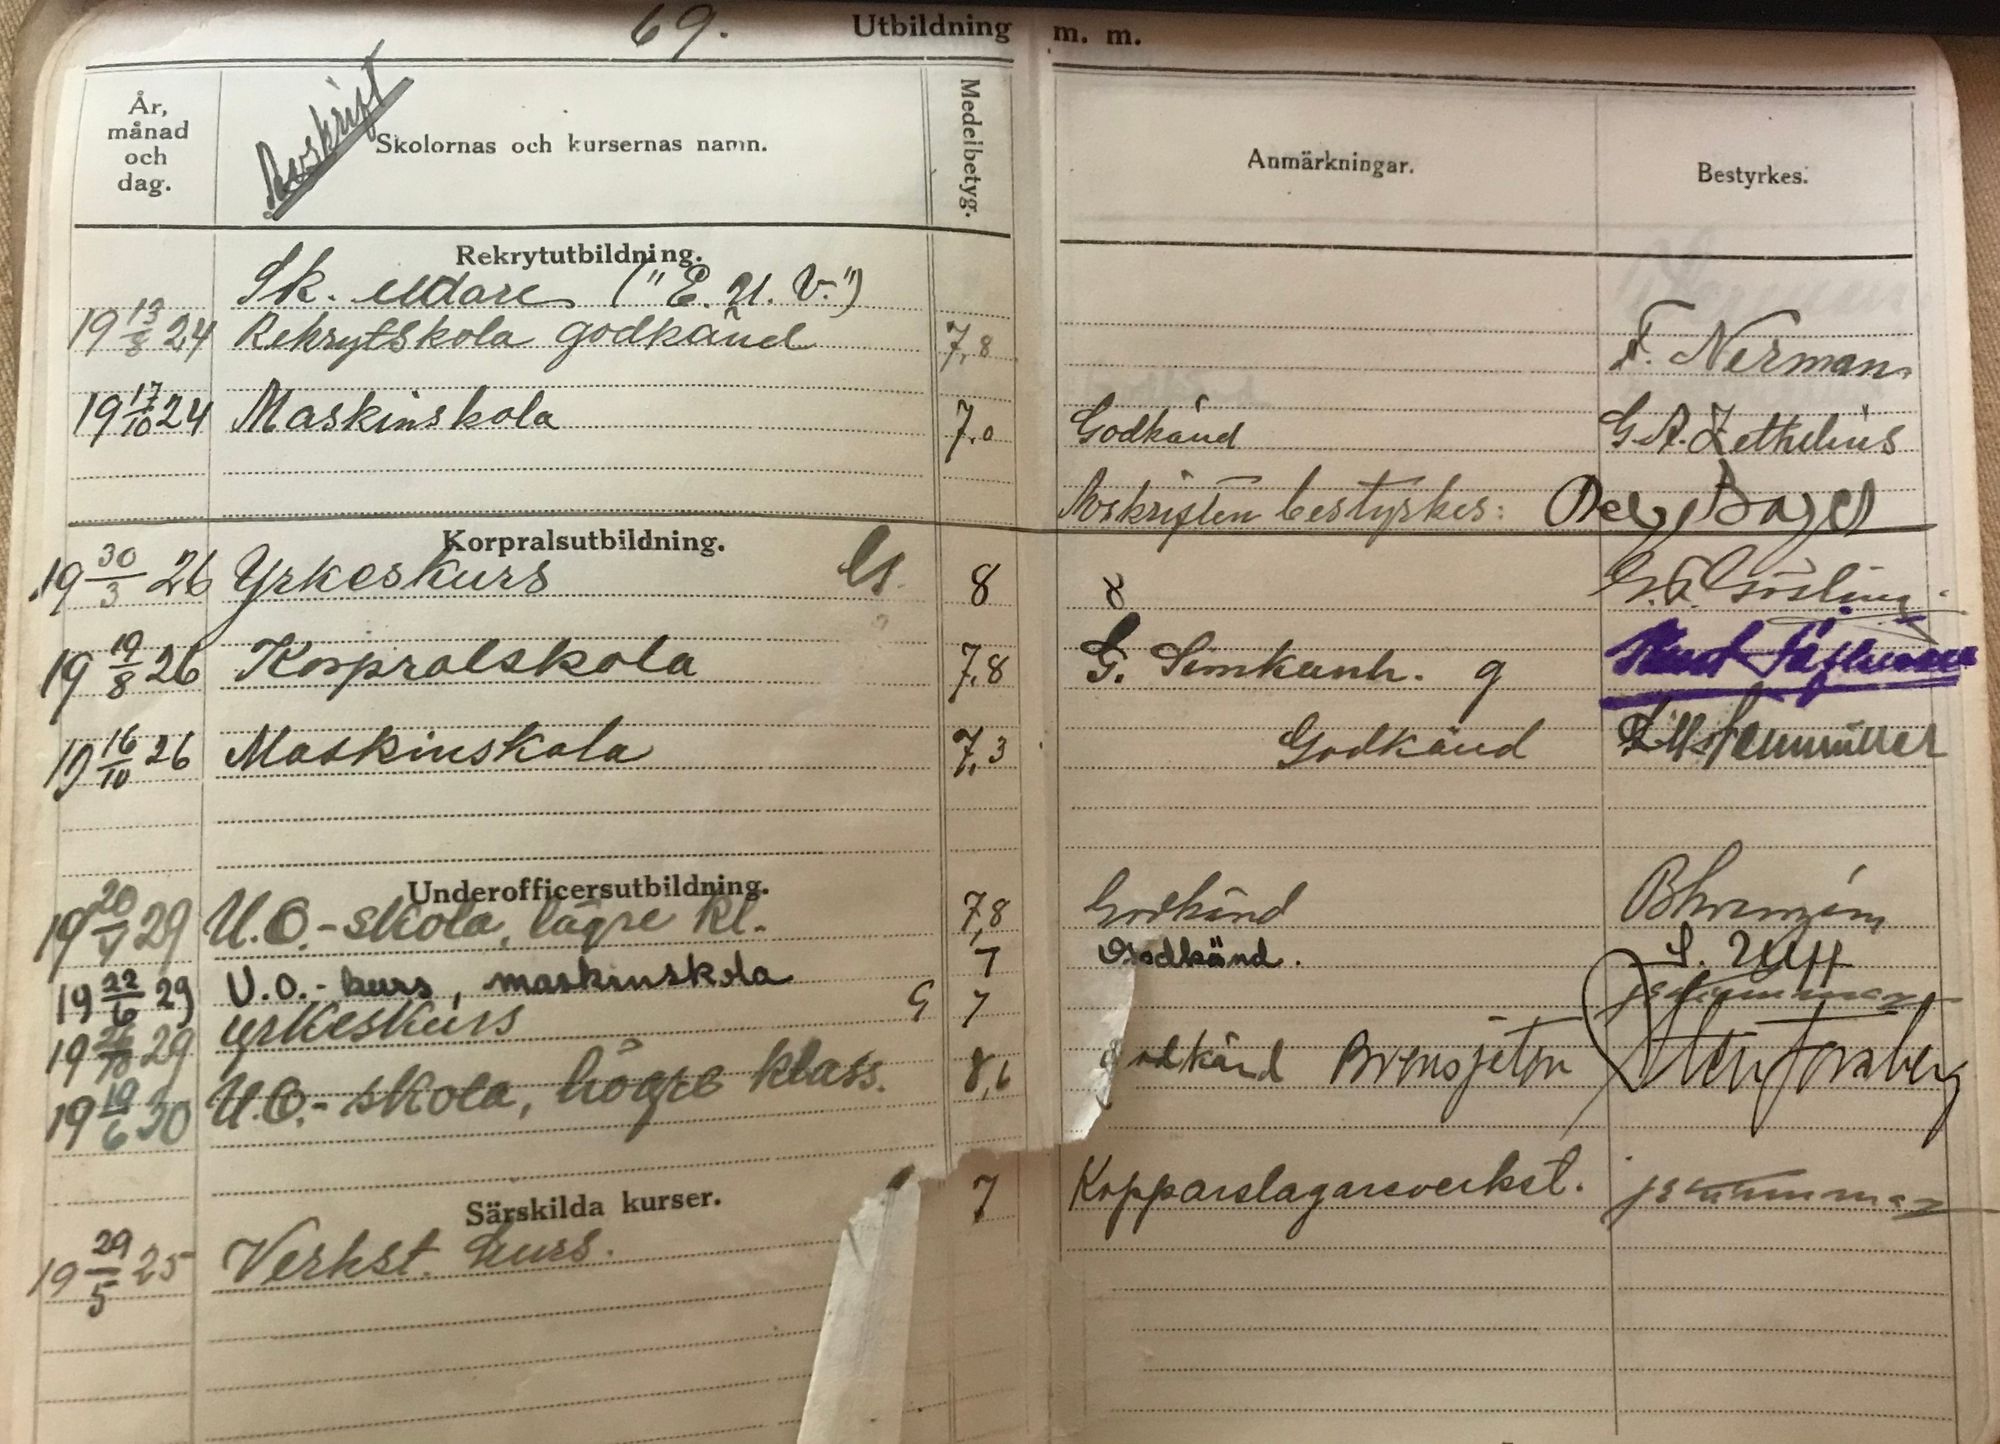 69. Utbildning m. m.
År, månad och dag. Avskrift Skolornas och kursernas namn. Medelbetyg. Anmärkningar. Bestyrkes:
Rekrytutbildning.
Sk. eldare ("E. U. V.")
19 13/8 24 Rekrytskola godkänd 7,8 F. Nerman
19 17/10 24 Maskinskola 7,0 Godkänd G.A. Zethelius
Avskriften bestyrkes:
Korpralsutbildning.
19 30/3 26 Yrkeskurs 8 G.F. Gösling
19 19/8 26 Korpralskola 7,8 G. g
19 16/10 26 Maskinskola 7,3 Godkänd
Underofficersutbildning.
19 20/4 29 U.O.-skola, lägre kl. 7,8 Godkänd
19 22/6 29 U.O.-kurs, maskinskola 7 Godkänd. S. Ulff
19 26/10 29 yrkeskurs G 7
19 19/6 30 U.O.-skola, högre klass. 8,6 Godkänd Bronsjeton
Särskilda kurser.
19 29/5 25 Verkst. kurs. 7 Kopparslagareverkst.